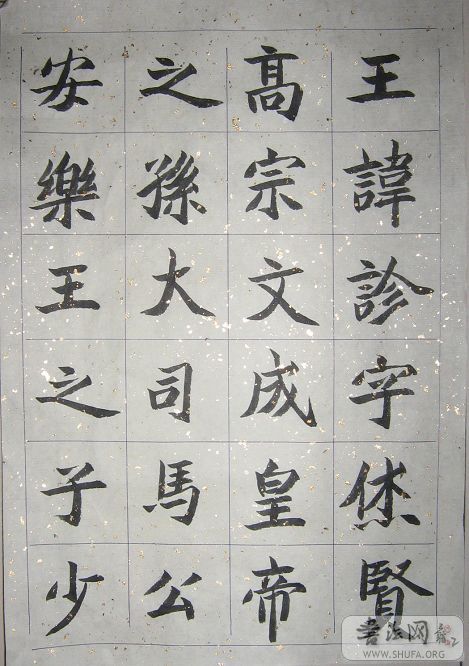 王諱診字烋賢
高宗文成皇帝
之孫大司馬公
安樂王之子少
書法网
WWW.SHUFA.ORG